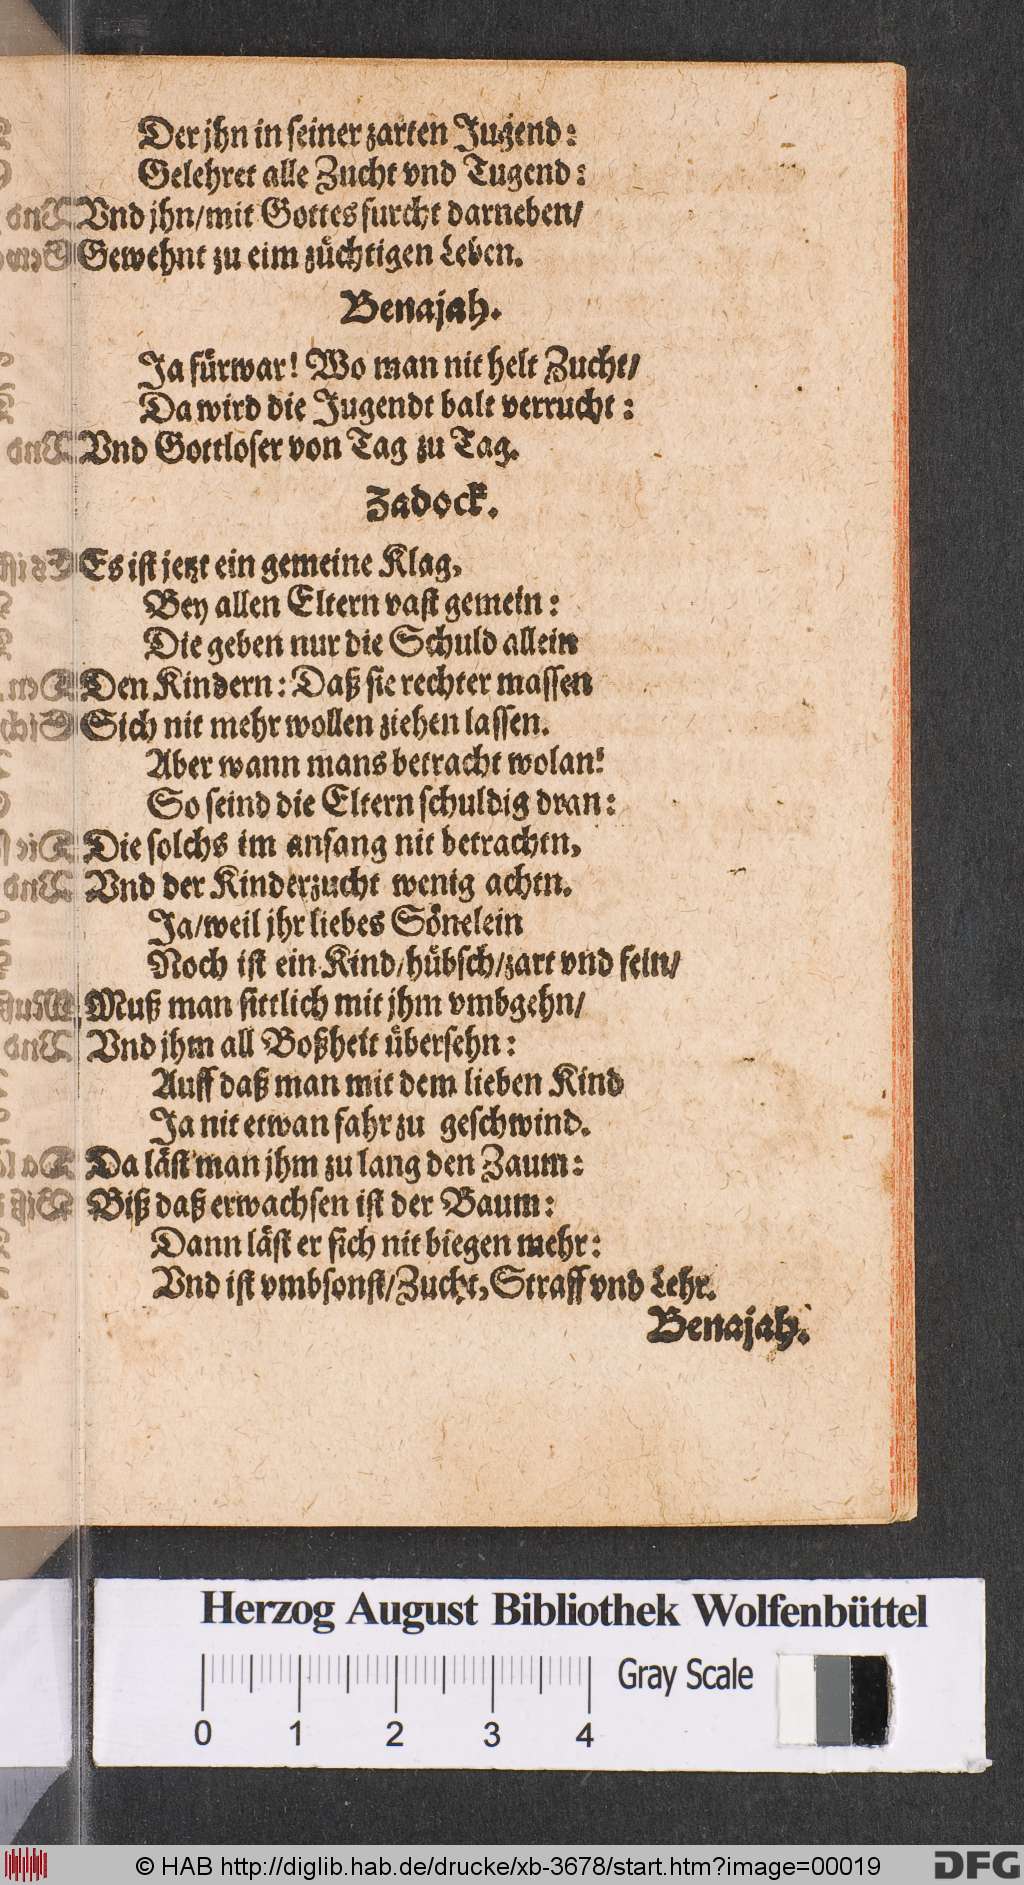 Der jhn in seiner zarten Jugend:
Gelehret alle Zucht vnd Tugend:
Vnd jhn/mit Gottesfurcht darneben/
Gewehnt zu eim züchtigen Leben.
Benajah.
Ja fürwar! Wo man nit helt Zucht/
Da wird die Jugendt balt verrucht:
Vnd Gottloser von Tag zu Tag.
Zadock.
Es ist jetzt ein gemeine Klag,
Bey allen Eltern vast gemein:
Die geben nur die Schuld allein
Den Kindern: Daß sie rechter massen
Sich nit mehr wollen ziehen lassen.
Aber wann mans betracht wolan!
So seind die Eltern schuldig dran:
Die solchs im anfang nit betrachtn,
Vnd der Kinderzucht wenig achtn.
Ja/weil jhr liebes Sönelein
Noch ist ein Kind/hübsch/zart vnd fein/
Muß man sittlich mit jhm vmbgehn/
Vnd jhm all Boßheit übersehn:
Auff daß man mit dem lieben Kind
Ja nit etwan fahr zu geschwind.
Da läst man jhm zu lang den Zaum:
Biß daß erwachsen ist der Baum:
Dann läst er sich nit biegen mehr:
Vnd ist vmbsonst/Zucht, Straff vnd Lehr.
Benajah.
Herzog August Bibliothek Wolfenbüttel
Gray Scale
0 1 2 3 4
© HAB http://diglib.hab.de/drucke/xb-3678/start.htm?image=00019
DFG